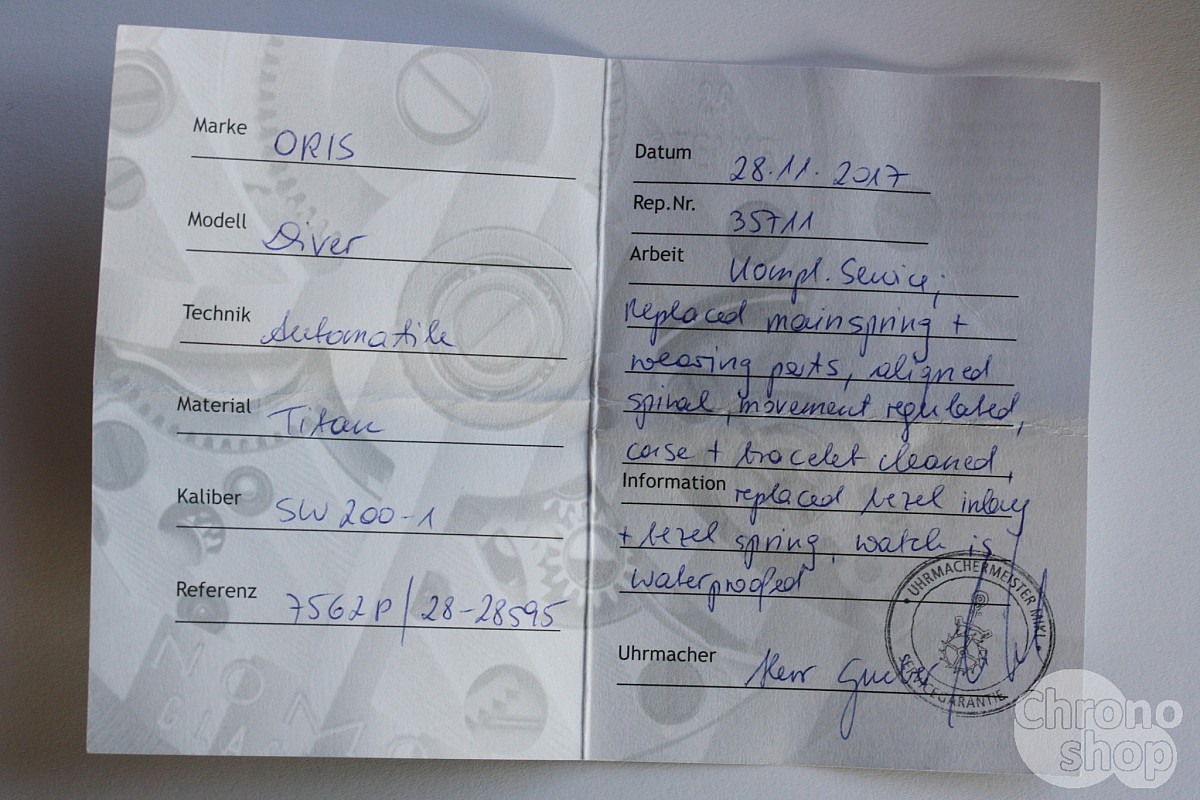 Marke ORIS
Modell Diver
Technik Automatik
Material Titan
Kaliber SW 200-1
Referenz 7562P/28-28595
Datum 28.11.2017
Rep.Nr. 35711
Arbeit Kompl. Service,
replaced mainspring +
wearing parts, aligned
spiral, movement regulated,
case + bracelet cleaned,
Information replaced bezel inlay
+ bezel spring, watch is
waterproofed
UHRMACHERMEISTER MIKL
SERVICEGARANTIE
Uhrmacher Herr
Chrono
shop